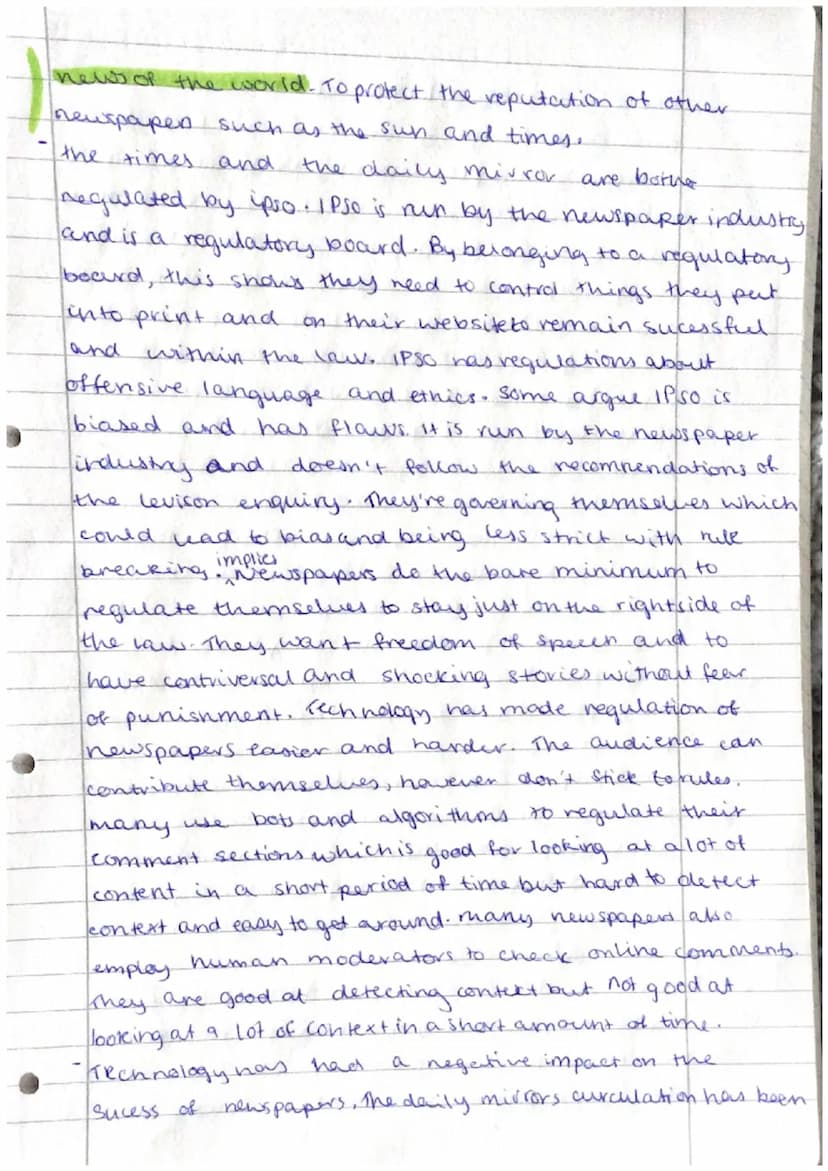 news of the world. To protect the reputation of other
newspapers such as the sun and times.
- the times and the daily mirror are both
regulated by ipso. IPSO is run by the newspaper industry
and is a regulatory board. By belonging to a regulatory
board, this shows they need to control things they put
into print and on their website to remain sucessful
and within the law. IPSO has regulations about
offensive language and ethics. Some argue IPSO is
biased and has flaws. It is run by the newspaper
industry and doesn't follow the recomendations of
the levison enquiry. They're governing themselves which
could lead to bias and being less strict with rule
breaking. implies Newspapers do the bare minimum to
regulate themselves to stay just on the right side of
the law. They want freedom of speech and to
have contriversal and shocking stories without fear
of punishment. Technology has made regulation of
newspapers easier and harder. The audience can
contribute themselves, however don't stick to rules.
many use bots and algorithms to regulate their
comment sections which is good for looking at a lot of
content in a short period of time but hard to detect
context and easy to get around. many newspapers also
employ human moderators to check online comments.
They are good at detecting context but not good at
looking at a lot of context in a short amount of time.
- Technology has had a negative impact on the
sucess of newspapers. The daily mirrors curculation has been